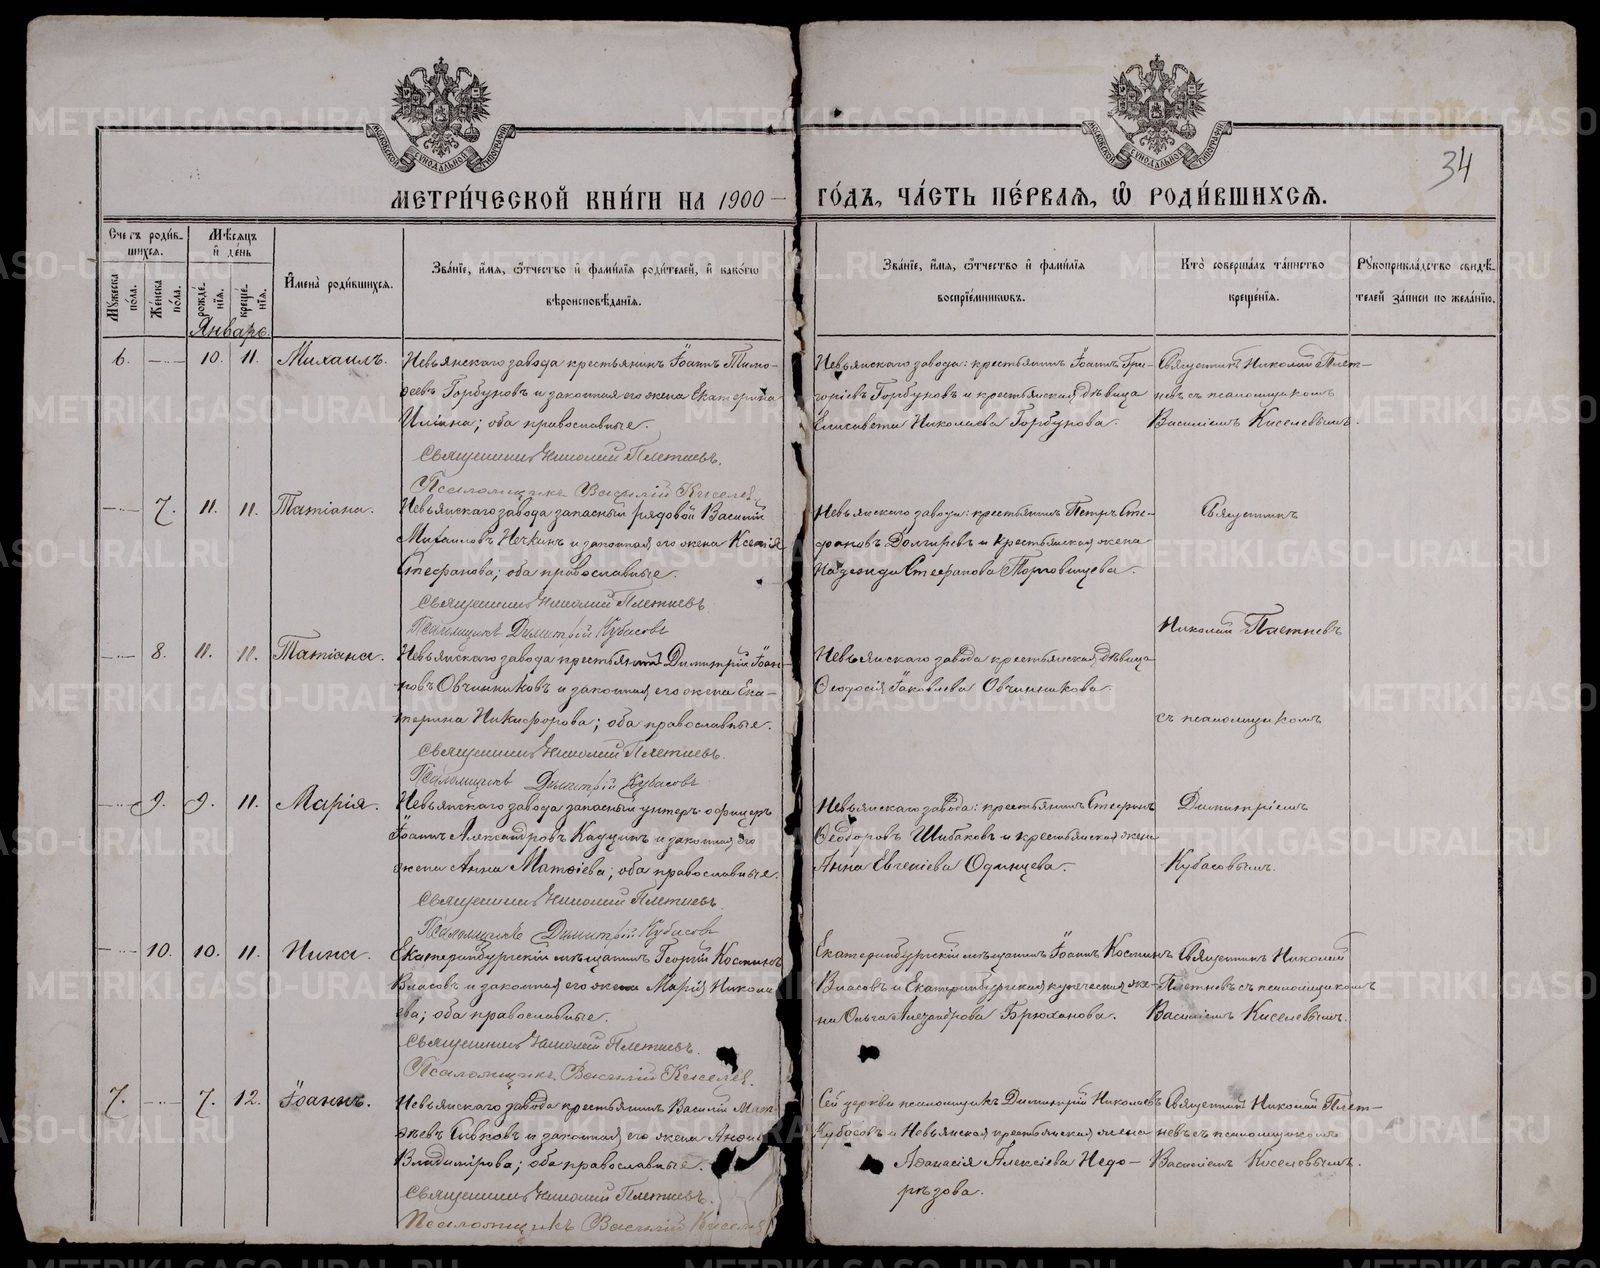 МОСКОВСКОЙ СУНОДАЛЬНОЙ ТИПОГРАФIИ
МОСКОВСКОЙ СУНОДАЛЬНОЙ ТИПОГРАФIИ
34
МЕТРИ́ЧЕСКОЙ КНИ́ГИ НА 1900 — ГО́ДЪ, ЧА́СТЬ ПЕ́РВАѦ, Ѽ РОДИ́ВШИХСѦ.
Счетъ роди́в-
шихсѧ.
Мꙋжеска по́ла.
Же́нска по́ла.
Мѣ́сѧцъ
и҆ де́нь
рожде́-нїѧ.
креще́-нїѧ.
И҆мена̀ роди́вшихсѧ.
Зва́нїе, и҆́мѧ, ѻ҆́тчество и҆ фами́лїѧ роди́телей, и҆ како́гѡ
вѣроисповѣ́данїѧ.
Зва́нїе, и҆́мѧ, ѻ҆́тчество и҆ фами́лїѧ
воспрїе́мниковъ.
Кто̀ соверша́лъ та́инство
креще́нїѧ.
Рꙋкоприкла́дство свидѣ́-
телей за́писи по жела́нїю.
Январь.
6. — 10. 11. Михаилъ.
Невьянскаго завода крестьянинъ Іоаннъ Тимо-
ѳеевъ Горбуновъ и законная его жена Екатерина
Илiина; оба православные.
Священникъ Николай Плетневъ.
Псаломщикъ Василій Киселев
Невьянскаго завода: крестьянинъ Іоаннъ Гри-
горіевъ Горбуновъ и крестьянская дѣвица
Елисавета Николаева Горбунова.
Священникъ Николай Плет-
невъ съ псаломщикомъ
Василіемъ Киселевымъ.
— 7. 11. 11. Татіана.
Невьянскаго завода запасный рядовой Василій
Михаиловъ Нечкинъ и законная его жена Ксенія
Стефанова; оба православные.
Священникъ Николай Плетневъ
Псаломщикъ Димитрій Кубасовъ
Невьянскаго завода: крестьянинъ Петръ Сте-
фановъ Долгиревъ и крестьянская жена
Надежда Стефанова Торговищева.
Священникъ
Николай Плетневъ
— 8. 11. 11. Татіана.
Невьянскаго завода крестьянинъ Димитрій Іоан-
новъ Овчинниковъ и законная его жена Ека-
терина Никифорова; оба православные.
Священникъ Николай Плетневъ.
Псаломщикъ Димитрій Кубасовъ
Невьянскаго завода крестьянская дѣвица
Ѳеодосія Іаковлева Овчинникова.
съ псаломщикомъ
— 9. 9. 11. Марія.
Невьянскаго завода запасный унтеръ-офицеръ
Іоаннъ Александровъ и законная его
жена Анна Матѳіева; оба православные.
Священникъ Николай Плетневъ.
Псаломщикъ Димитрій Кубасовъ
Невьянскаго завода: крестьянинъ Стефанъ
Ѳеодоровъ Шибаковъ и крестьянская жена
Анна Евгеніева Одинцева.
Димитріемъ
Кубасовымъ.
— 10. 10. 11. Нина.
Екатеринбургскій мѣщанинъ Георгій Костинъ
Власовъ и законная его жена Марія Никола-
ева; оба православные.
Священникъ Николай Плетневъ.
Псаломщикъ Василій Киселев.
Екатеринбургскій мѣщанинъ Іоаннъ Костинъ
Власовъ и Екатеринбургская купеческая же-
на Ольга Александрова Брюханова.
Священникъ Николай
Плетневъ съ псаломщикомъ
Василіемъ Киселевымъ.
7. — 7. 12. Іоаннъ.
Невьянскаго завода крестьянинъ Василій Мат-
ѳіевъ Сивковъ и законная его жена
Владимірова; оба православные.
Священникъ Николай Плетневъ.
Псаломщикъ Василій Киселев
Сей церкви псаломщикъ Димитрій Николаевъ
Кубасовъ и Невьянская крестьянская жена
Аѳанасія Алексіева Недо-
рѣзова.
Священникъ Николай Плет-
невъ съ псаломщикомъ
Василіемъ Киселевымъ.
METRIKI.GASO-URAL.RU